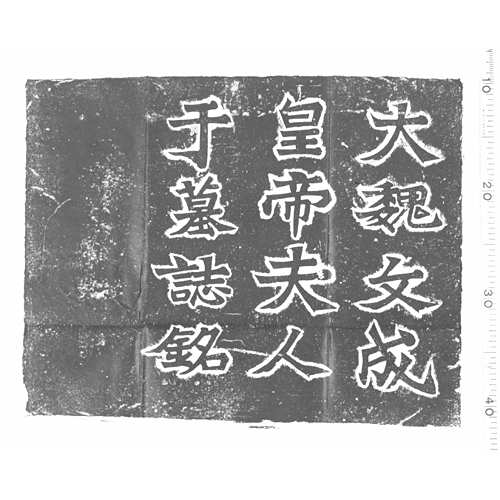 大魏文成
皇帝夫人
于墓誌銘
10
20
30
40